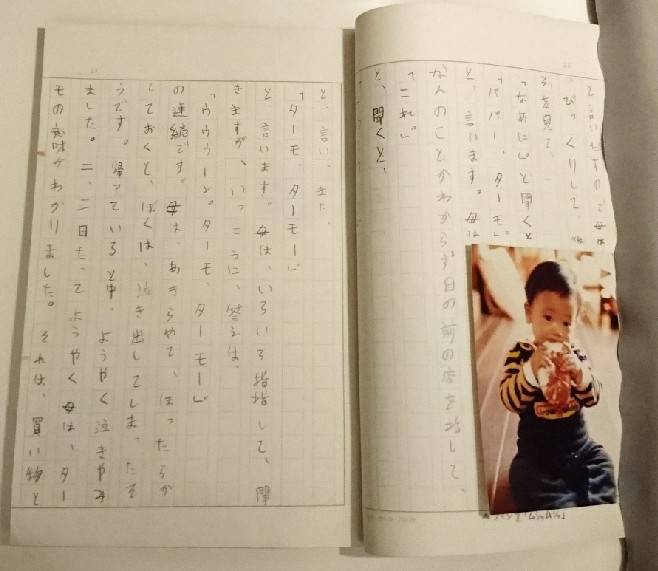 と言いだすので母は
びっくりして
を見て
「なあに」と聞くと
「パパー、ターモ。」
と、言います。母は
なんのことかわからず目の前の店を指して、
「これ。」
と、聞くと、
と、言い、また、
「ターモ、ターモー」
と、言います。母は、いろいろ指指して、聞
きますが、いっこうに、答えは、
「ウウウーン。ターモ、ターモー」
の連続です。母は、あきらめて、ほったらか
しておくと、ぼくは、泣き出してしまったそ
うです。帰っているとき、ようやく泣きやみ
ました。二、三日たってようやく母は、ター
モの意味がわかりました。それは、買い物と